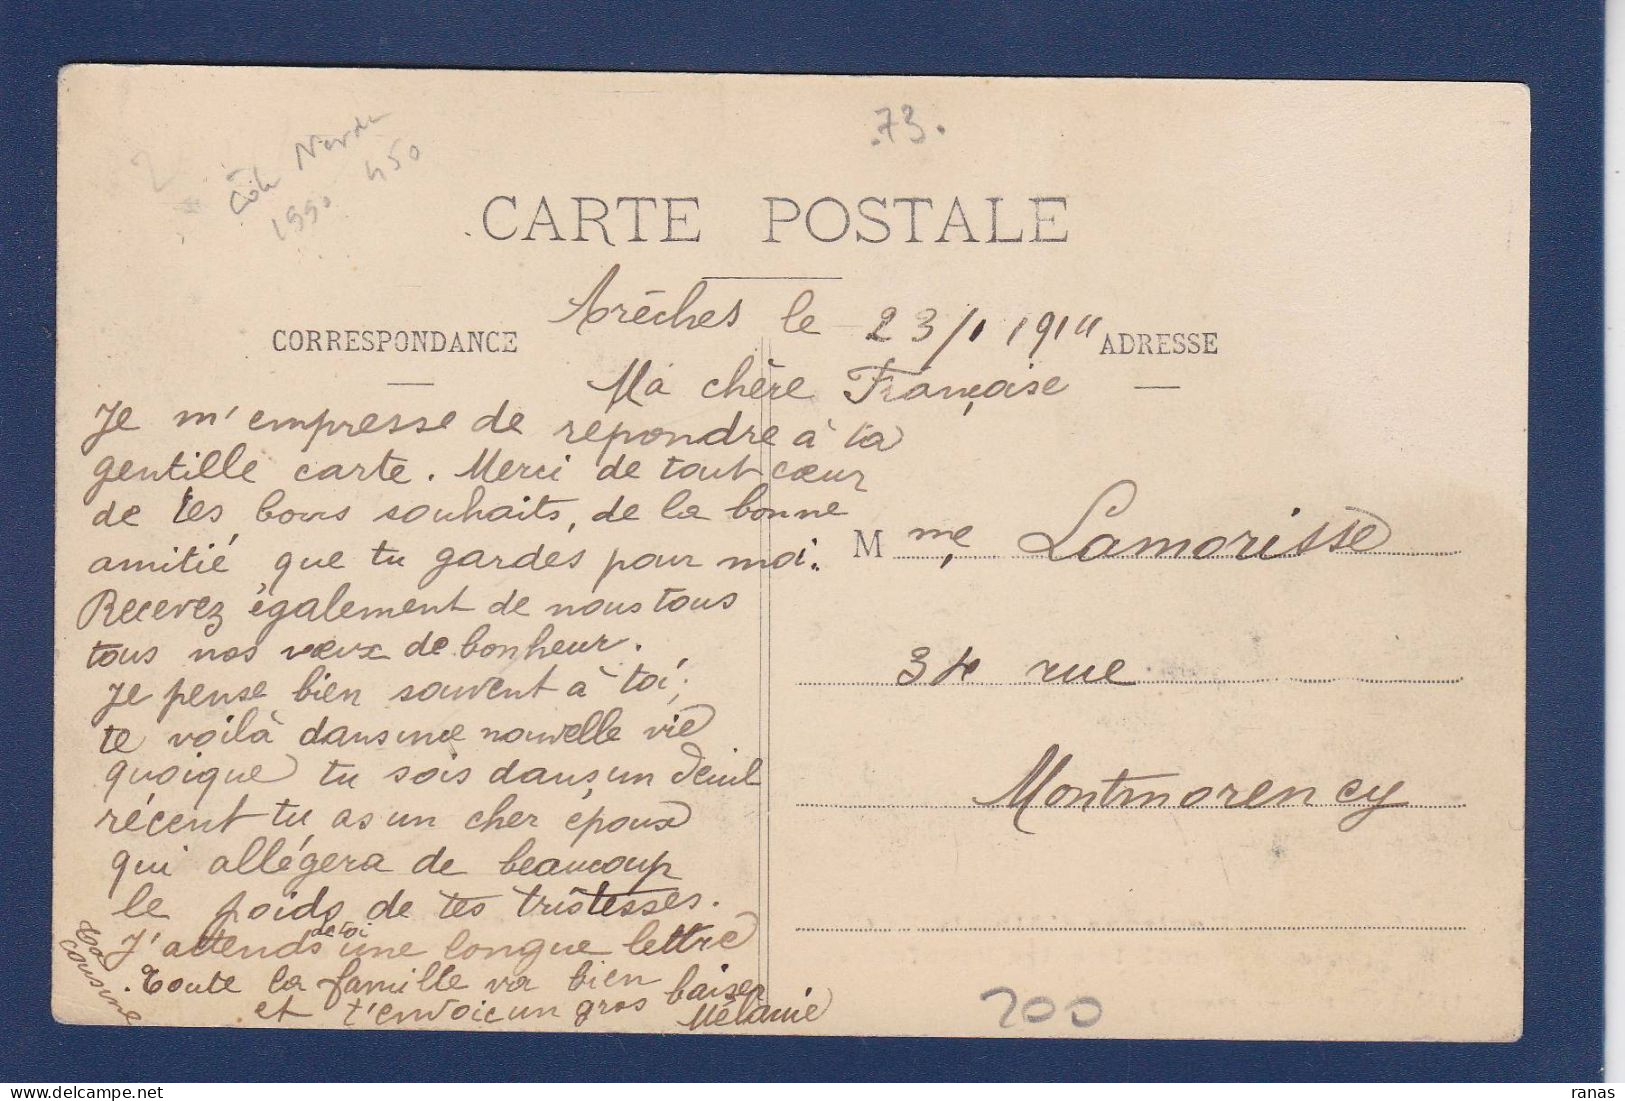 73.
1990 450
CARTE POSTALE
Arèches le 23/1 1914
CORRESPONDANCE
ADRESSE
Ma chère Françoise
Je m'empresse de repondre à ta
gentille carte. Merci de tout cœur
de tes bons souhaits, de la bonne
amitié que tu gardes pour moi.
Recevez également de nous tous
tous nos vœux de bonheur.
Je pense bien souvent à toi;
te voilà dans une nouvelle vie
quoique tu sois dans un deuil
récent tu as un cher époux
qui allégera de beaucoup
le poids de tes tristesses.
J'attends de toi une longue lettre
Toute la famille va bien
et t'envoie un gros baiser
Ta cousine
Mélanie
Mme Lamorisse
34 rue
Montmorency
200
ranas